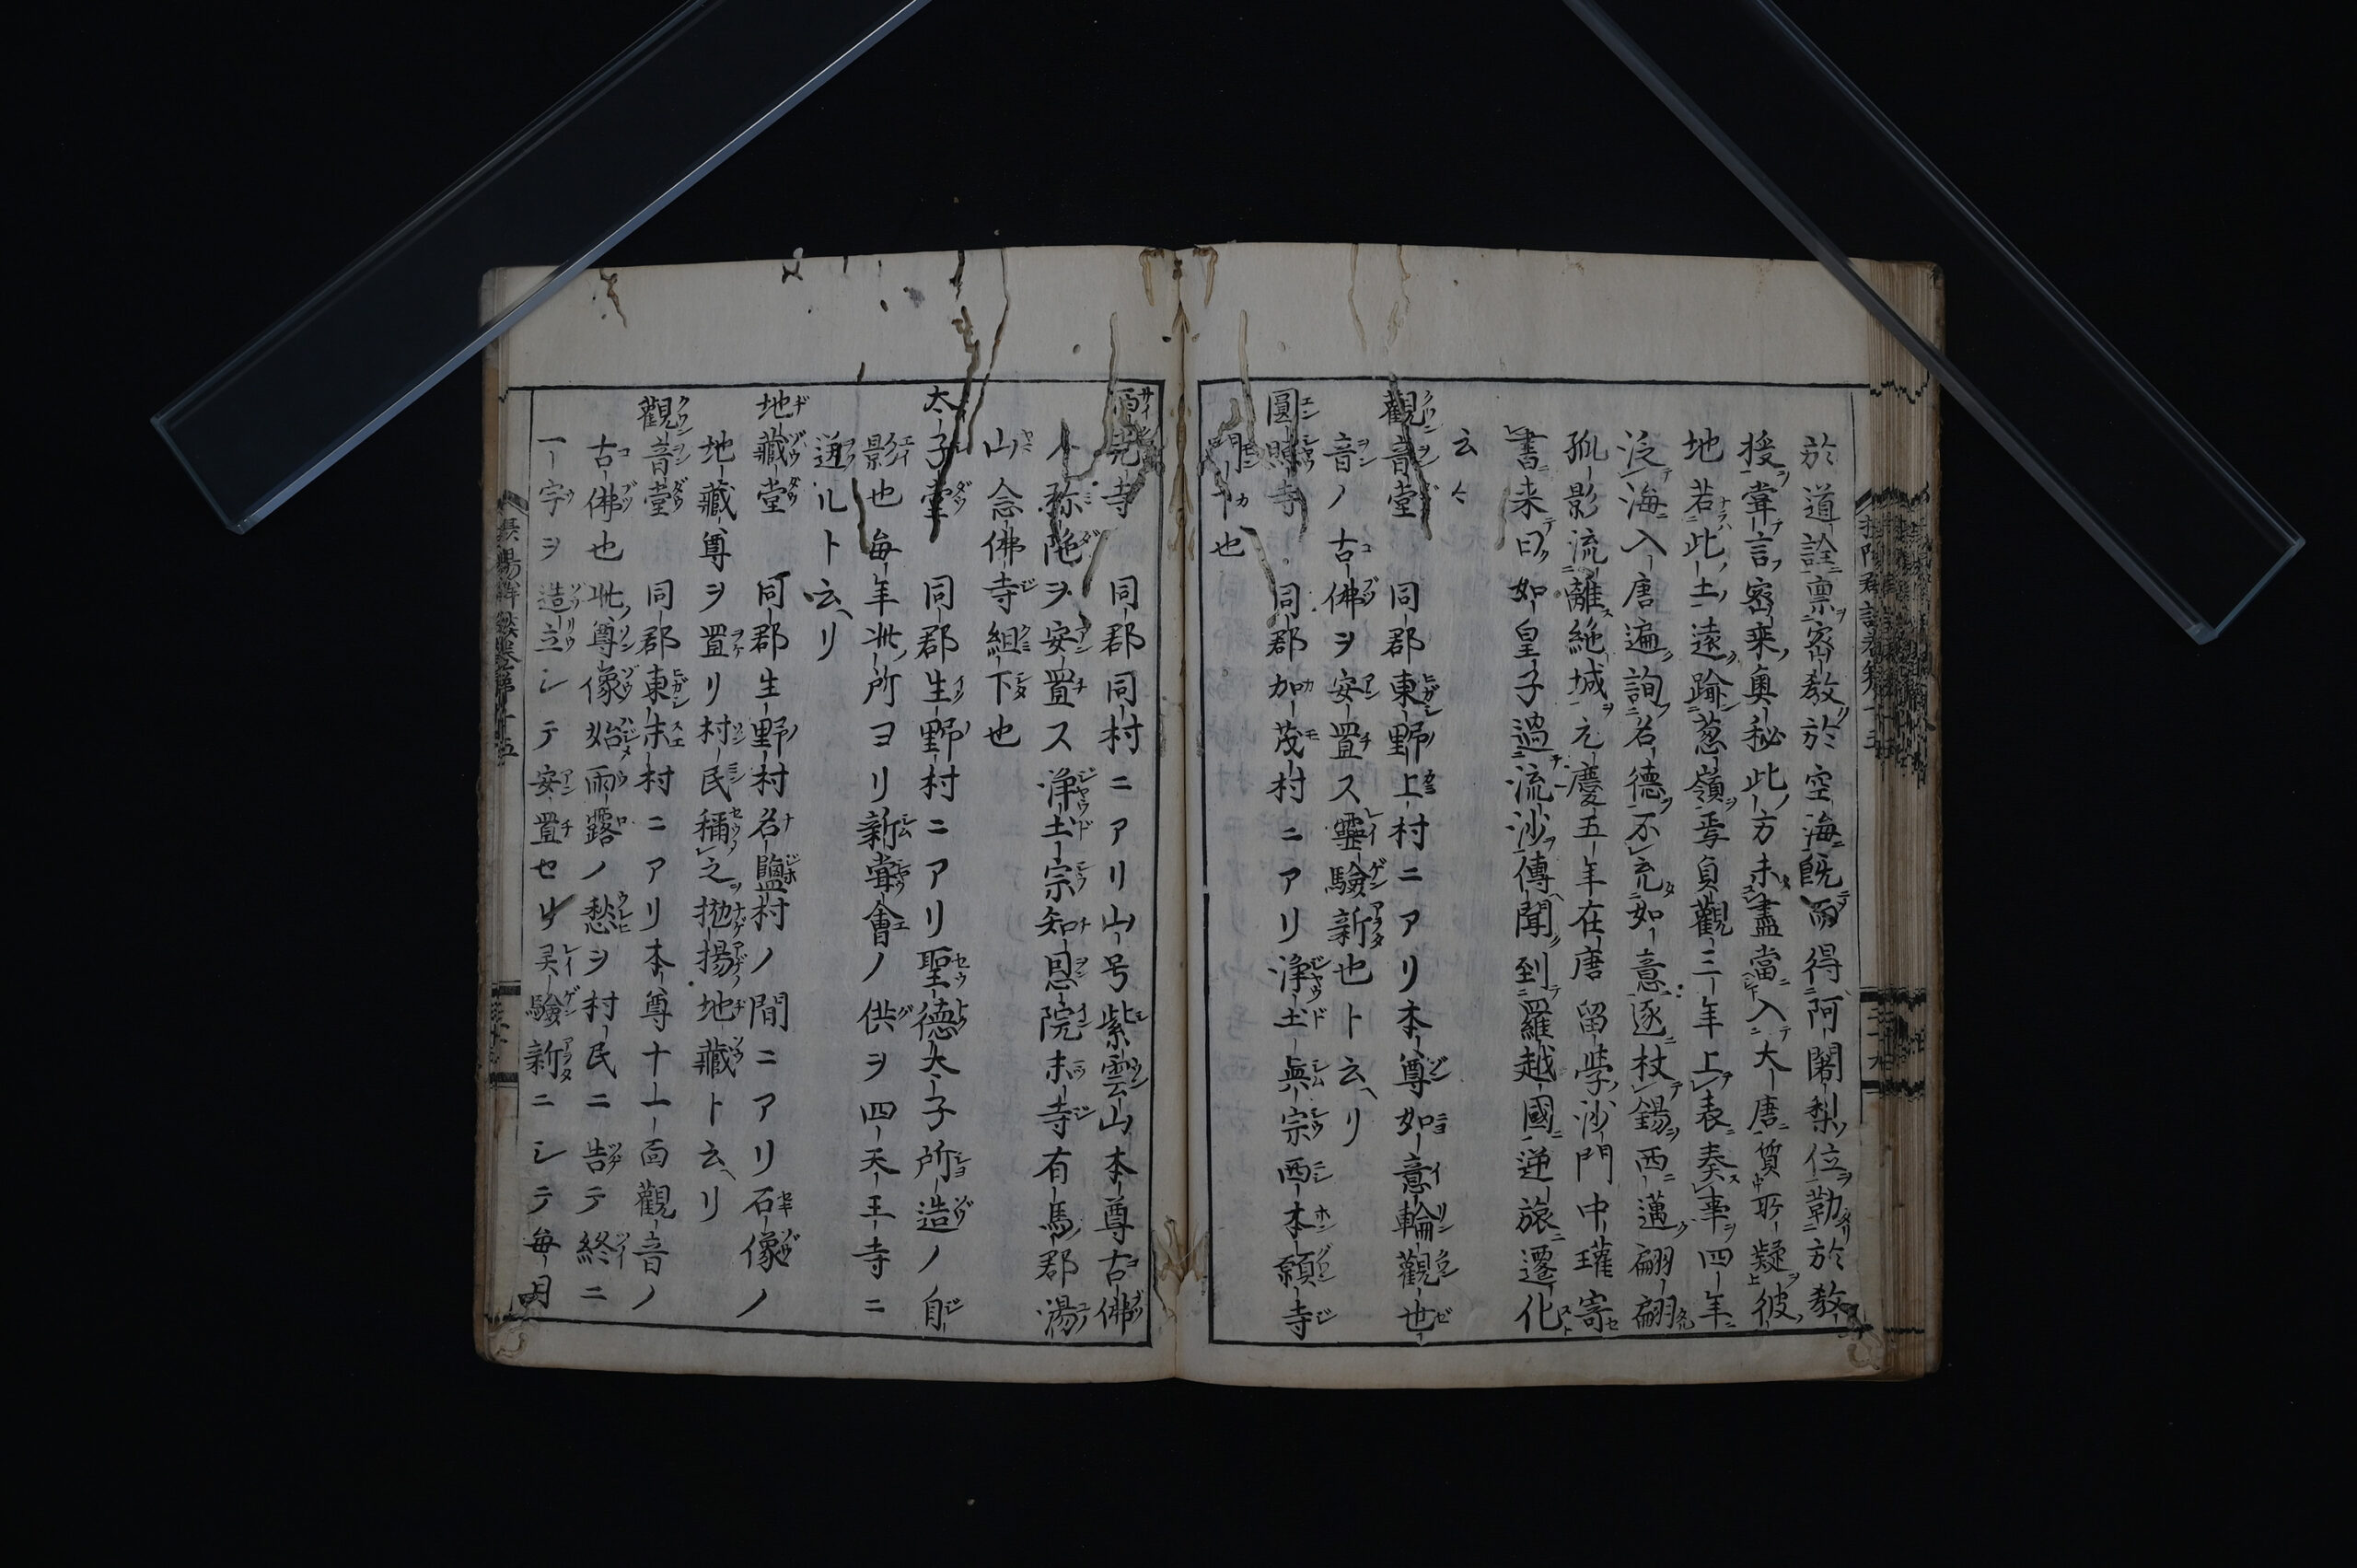 於道詮禀密教於空海既而得阿闍梨位勒於教
授嘗言密乘奥秘此方未盡當入大唐質所疑彼
地若此土遠踰葱嶺焉貞觀三年上表奏事四年
泛海入唐遍詢名德不充如意遂杖錫西邁翩翩
孤影流離絶域元慶五年在唐留學沙門中瓘寄
書来曰如皇子過流沙傳聞到羅越國逆旅遷化
云々
觀音堂 同郡東野上村ニアリ本尊如意輪觀世
音ノ古佛ヲ安置ス靈驗新也ト云リ
圓照寺 同郡加茂村ニアリ浄土眞宗西本願寺
門下也
西光寺 同郡同村ニアリ山号紫雲山本尊古佛
ノ弥陀ヲ安置ス浄土宗知恩院末寺有馬郡湯
山念佛寺組下也
太子堂 同郡生野村ニアリ聖德太子所造ノ自
影也毎年此所ヨリ新嘗會ノ供ヲ四天王寺ニ
送ルト云リ
地藏堂 同郡生野村名鹽村ノ間ニアリ石像ノ
地藏尊ヲ置リ村民稱之抛揚地藏ト云リ
觀音堂 同郡東末村ニアリ本尊十一面觀音ノ
古佛也此尊像始雨露ノ愁ヲ村民ニ告テ終ニ
一宇ヲ造立シテ安置セリ灵驗新ニシテ毎月